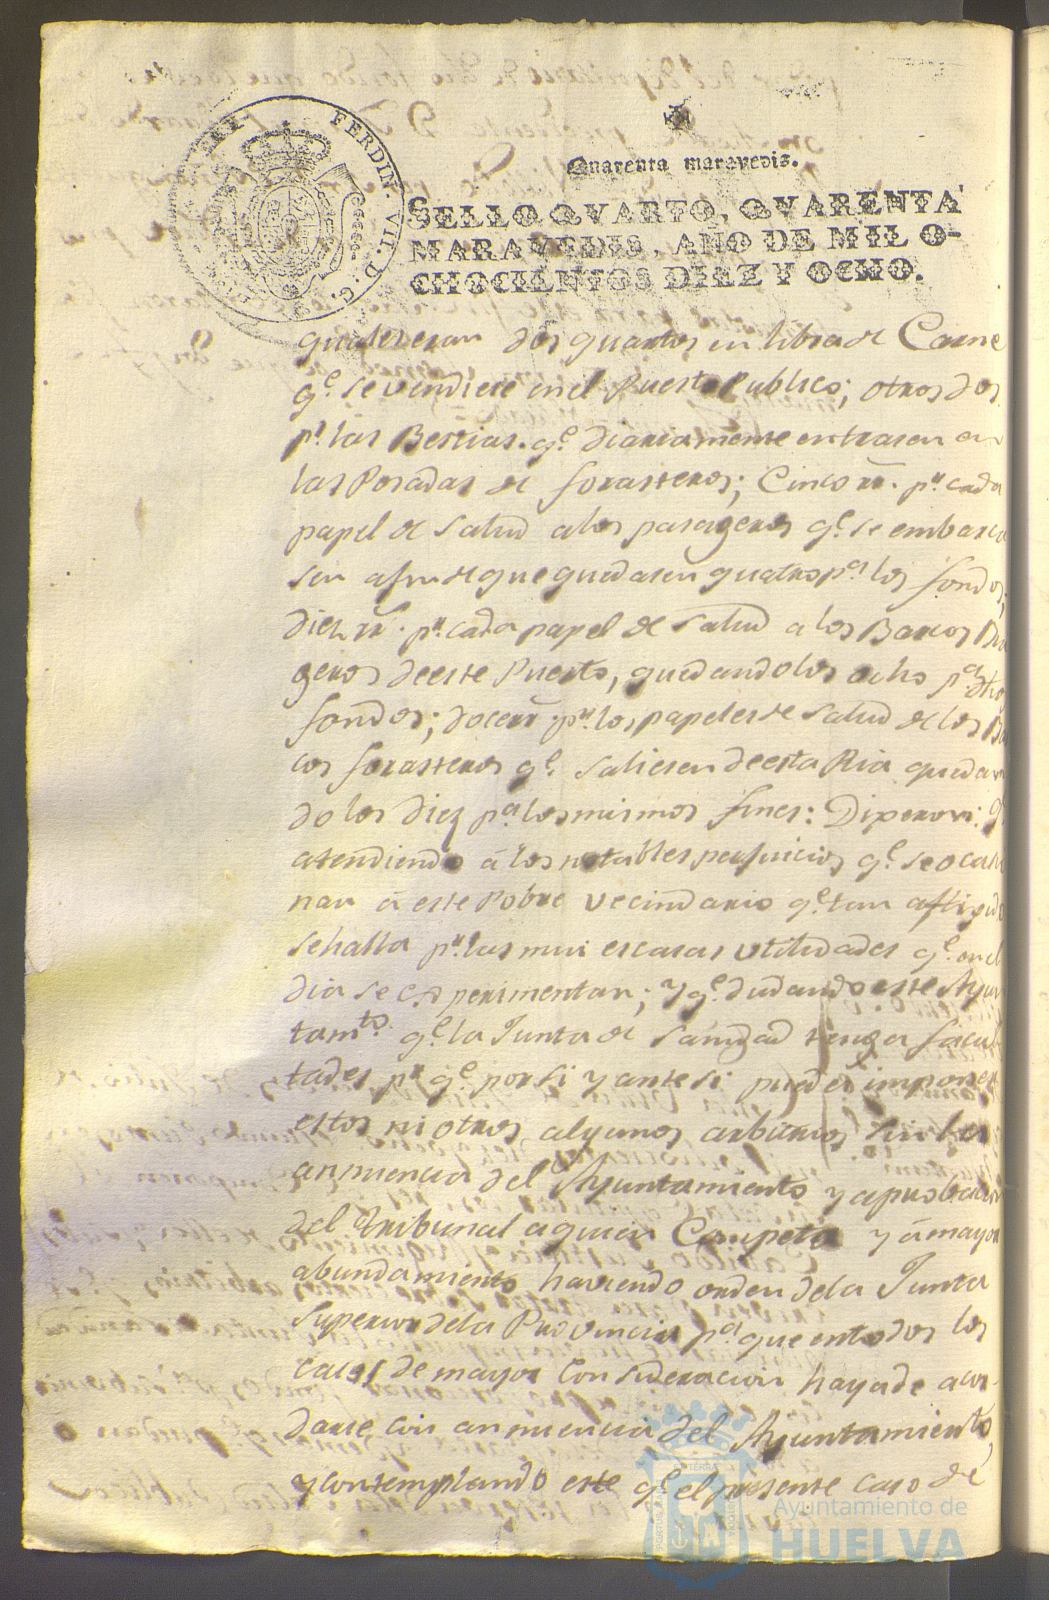 FERDIN. VII. D. G.
Quarenta maravedis.
SELLO QVARTO, QVARENTA
MARAVEDIS, AÑO DE MIL O-
CHOCIENTOS DIEZ Y OCHO.
quales eran dos quartos en libra de Carne
qe. se vendiere en el Puesto Publico; otros dos
pr. las Bestias qe. diariamente entrasen en
las Posadas de forasteros; Cinco rr. pr. cada
papel de Salud a los pasageros qe. se embarca
sen a fin de que quedasen quatro pa. los fondos;
diez rr. pr. cada papel de Salud a los Barcos
geros de este Puerto, quedando los ocho pa. dhos
fondos; doce rr. pr. los papeles de Salud de los Bar
cos forasteros qe. saliesen de esta Ria quedan
do los diez pa. los mismos fines: Dixeron: q
atendiendo á los notables perjuicios qe. se ocasio
nan á este Pobre vecindario qe. tan afligido
se halla pr. las mui escasas utilidades qe. en el
dia se experimentan; y qe. dudando este Ayun
tamto. qe. la Junta de Sanidad tenga facul
tades pr. qe. por si y ante si pueda imponer
estos ni otros algunos arbitrios sin la
anuencia del Ayuntamiento y aprobacion
del Tribunal a quien Competa y á mayor
abundamiento haviendo orden de la Junta
Superior de la Provincia pa. que en todos los
casos de mayor Consideracion haya de acor-
darse con anuencia del Ayuntamiento,
y contemplando este qe. el presente caso de
Ayuntamiento de
HUELVA